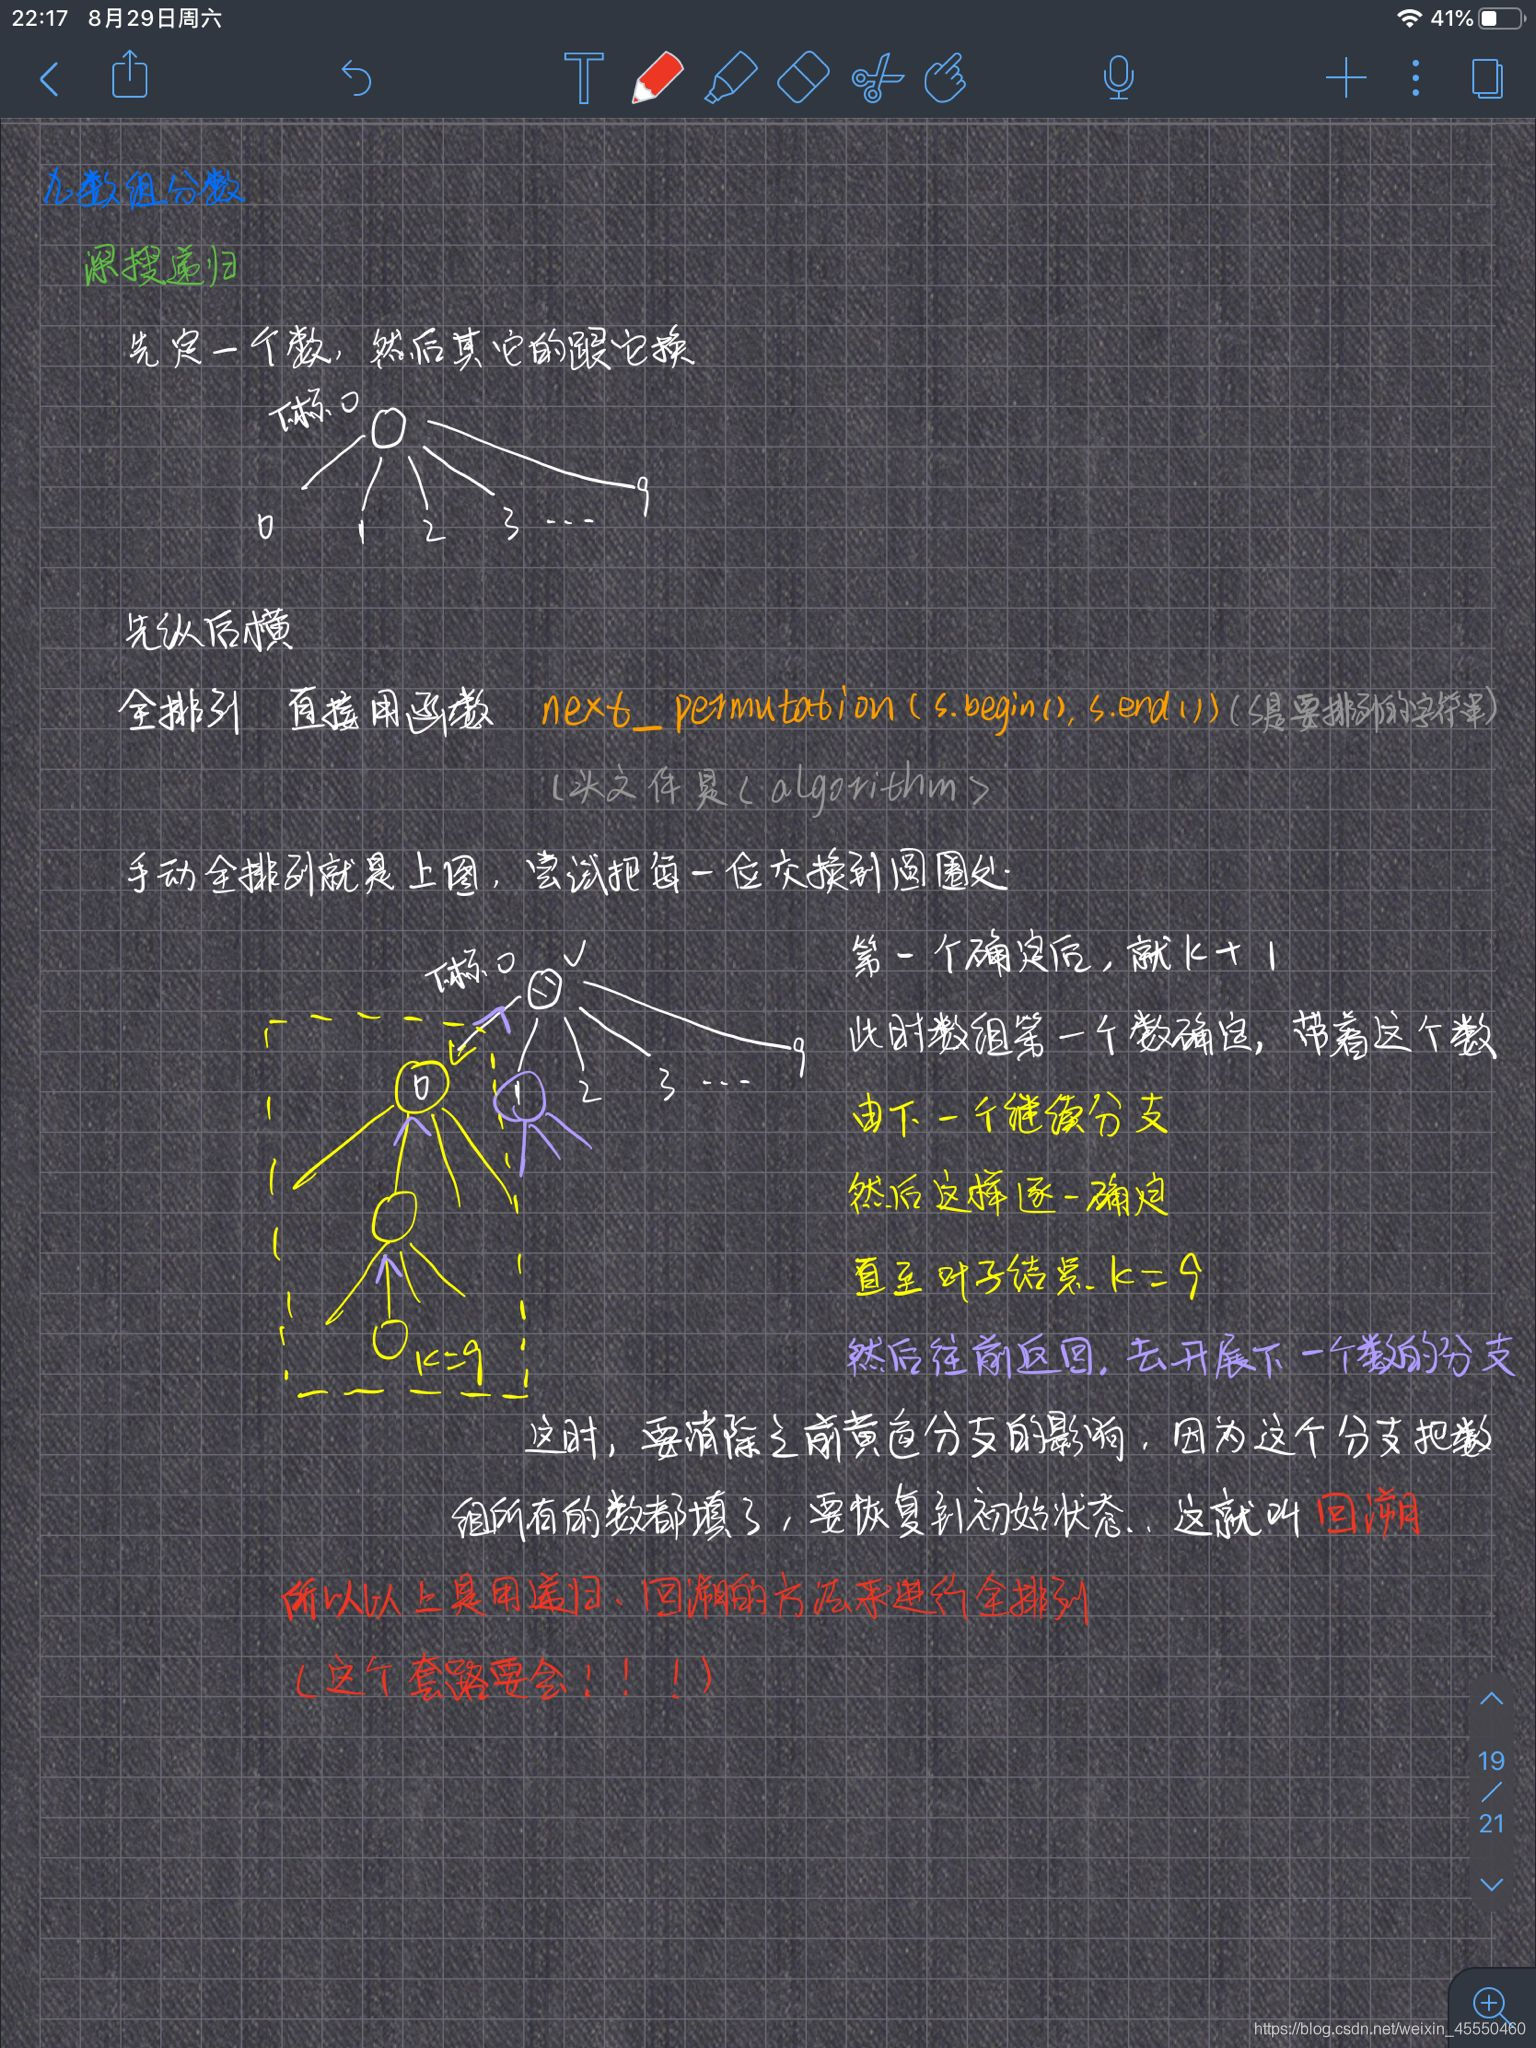 22:17 8月29日周六
41%
九数组分数
深搜递归
先定一个数，然后其它的跟它换
下标:0
0 1 2 3 ... 9
先纵后横
全排列 直接用函数 next_permutation(s.begin(), s.end()) (s是要排列的字符串)
(头文件是<algorithm>
手动全排列就是上图，尝试把每一位交换到圆圈处.
第一个确定后，就k+1
下标:0
此时数组第一个数确定，带着这个数
0 1 2 3 ... 9
由下一个继续分支
然后这样逐一确定
直至叶子结点.k=9
k=9
然后往前返回，去开展下一个数的分支
这时，要消除之前黄色分支的影响，因为这个分支把数
组所有的数都填了，要恢复到初始状态.. 这就叫 回溯
所以以上是用递归、回溯的方法来进行全排列
(这个套路要会！！！)
19
/
21
https://blog.csdn.net/weixin_45550460